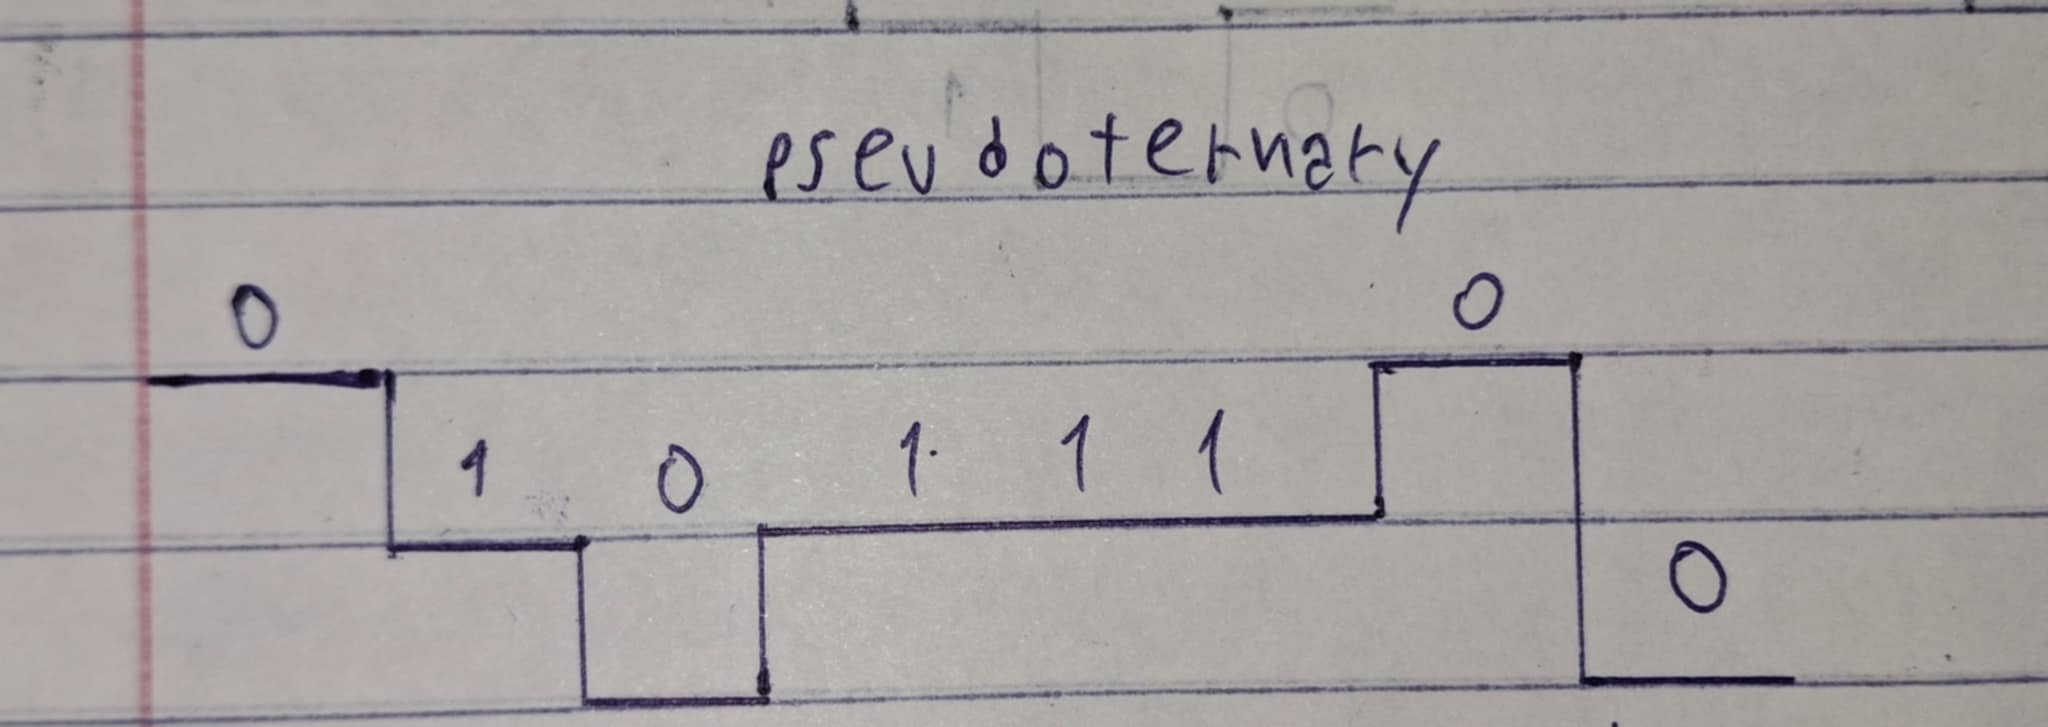 pseudoternary
0 1 0 1 1 1 0 0